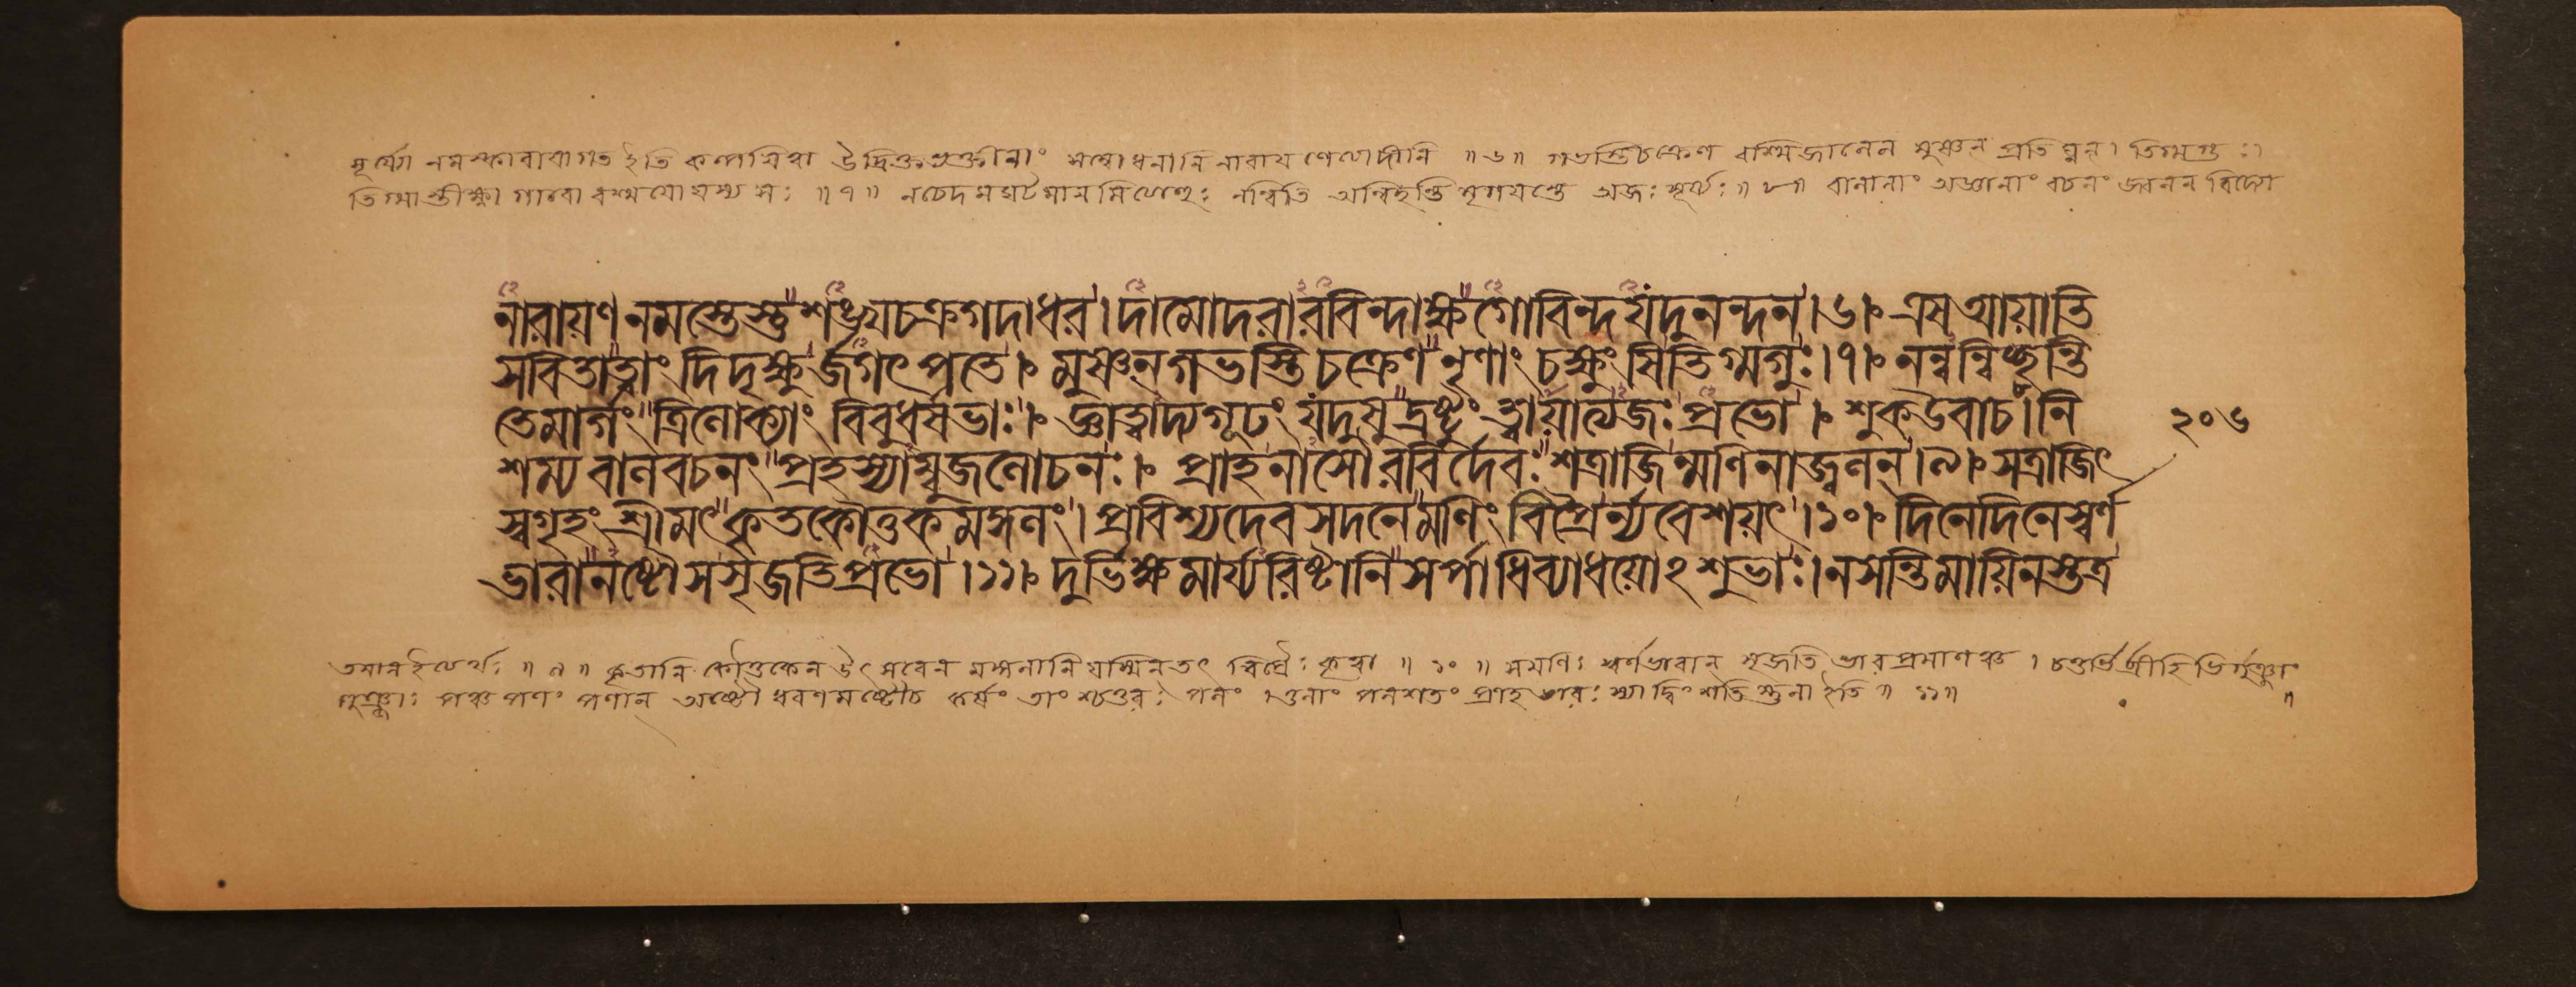 সূর্য্যো নমস্কারাবাগত ইতি কল্পয়িত্বা উদ্রিক্তভক্তীনাং সম্বোধনানি নারায়ণেত্যাদীনি ॥ ৬ ॥ গভস্তিচক্রেণ রশ্মিজালেন মুষ্ণন্ প্রতিঘ্নন্। তিগ্মগুঃ।
তিগ্মাস্তীক্ষ্ণা গাবো রশ্ময়ো যস্য সঃ ॥ ৭ ॥ নচেদমঘটমানমিত্যাহুঃ নন্বিতি অন্বিচ্ছন্তি মৃগয়ন্তে অজঃ সূর্য্যঃ ॥ ৮ ॥ বালানাং অজ্ঞানাং বচনং জ্বলন্
নারায়ণ নমস্তেস্তু শঙ্খচক্রগদাধর। দামোদরারবিন্দাক্ষ গোবিন্দ যদুনন্দন। ৬। এষ আয়াতি
সবিতা ত্বাং দিদৃক্ষুর্জগৎপতে। মুষ্ণন্ গভস্তিচক্রেণ নৃণাং চক্ষুংষি তিগ্মগুঃ। ৭। নন্বন্বিচ্ছন্তি
তে মার্গং ত্রিলোক্যাং বিবুধর্ষভাঃ। জ্ঞাত্বাদ্য গূঢং যদুষু দ্রষ্টুং ত্বা যাত্যজঃ প্রভো। শুক উবাচ। নি
শম্য বালবচনং প্রহস্যাম্বুজলোচনঃ। প্রাহ নাসৌ রবির্দেবঃ শত্রাজিন্মণিনা জ্বলন্। ৯। সত্রাজিৎ
২০৬
স্বগৃহং শ্রীমৎ কৃতকৌতুকমঙ্গলং। প্রবিশ্য দেবসদনে মণিং বিপ্রৈর্ন্যবেশয়ৎ। ১০। দিনে দিনে স্বর্ণ
ভারানষ্টৌ স সৃজতি প্রভো। ১১। দুর্ভিক্ষমার্য্যরিষ্টানি সর্পাধিব্যাধয়োঽশুভাঃ। ন সন্তি মায়িনস্তত্র
ভাসমান ইত্যর্থঃ ॥ ৯ ॥ কৃতানি কৌতুকেন উৎসবেন মঙ্গলানি যস্মিন্ তৎ বিপ্রৈঃ কৃত্বা ॥ ১০ ॥ স মণিঃ স্বর্ণভারান্ সৃজতি ভারপ্রমাণঞ্চ। চতুর্ভির্ব্রীহিভির্গুঞ্জাং
গুঞ্জাঃ পঞ্চ পণং পণান্ অষ্টৌ ধরণমষ্টৌচ কর্ষং তাংশ্চতুরঃ পলং। তুলাং পলশতং প্রাহ ভারঃ স্যাদ্বিংশতিস্তুলা ইতি ॥ ১১ ॥